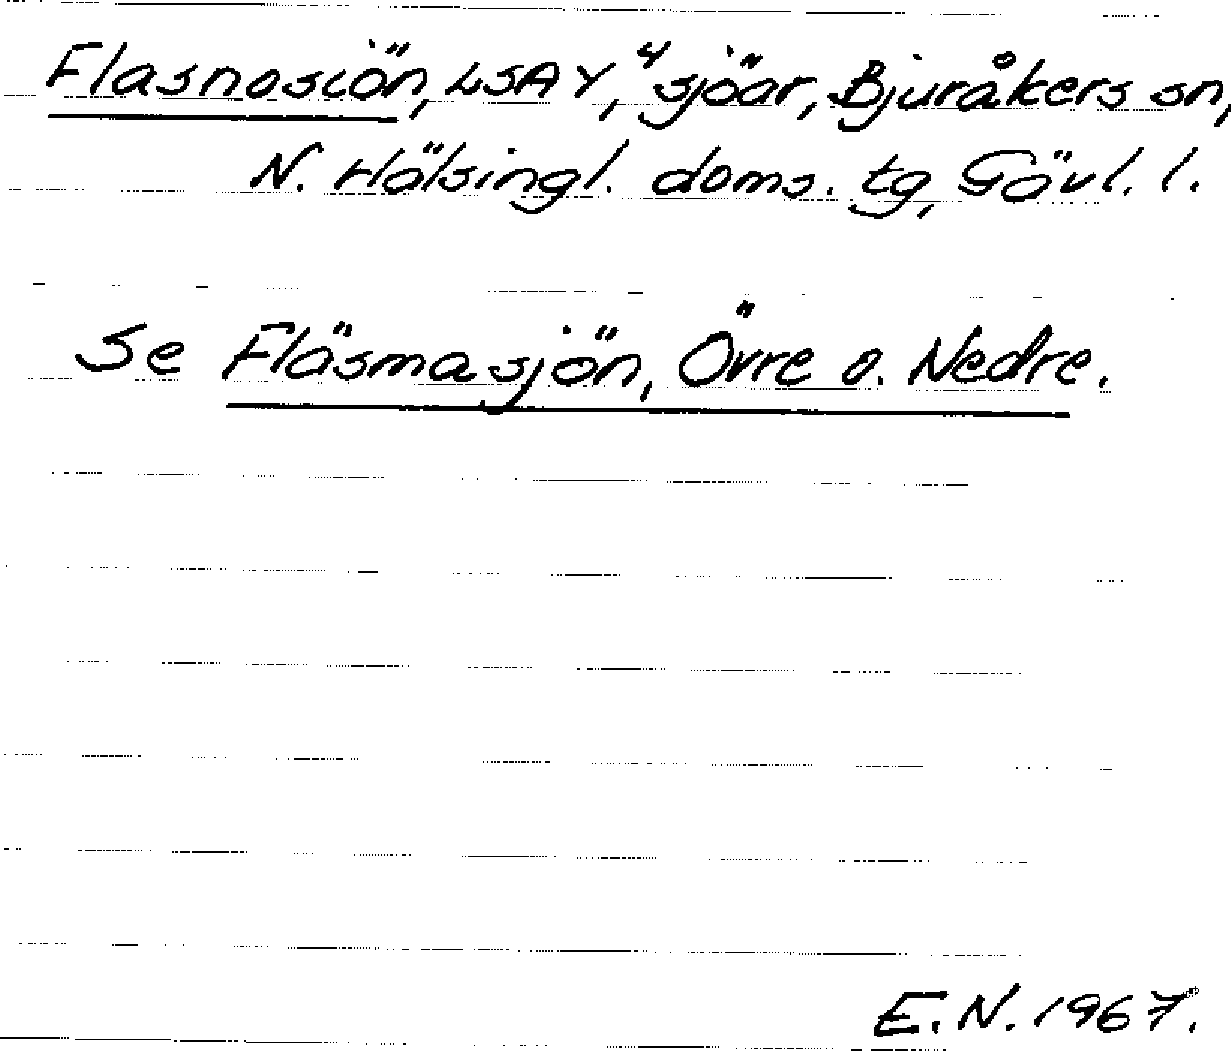 Flasnosiön, LSA Y, 4 sjöar, Bjuråkers sn,
N. Hälsingl. doms. tg, Gävl. l.
Se Fläsmasjön, Övre o. Nedre.
E.N. 1967.